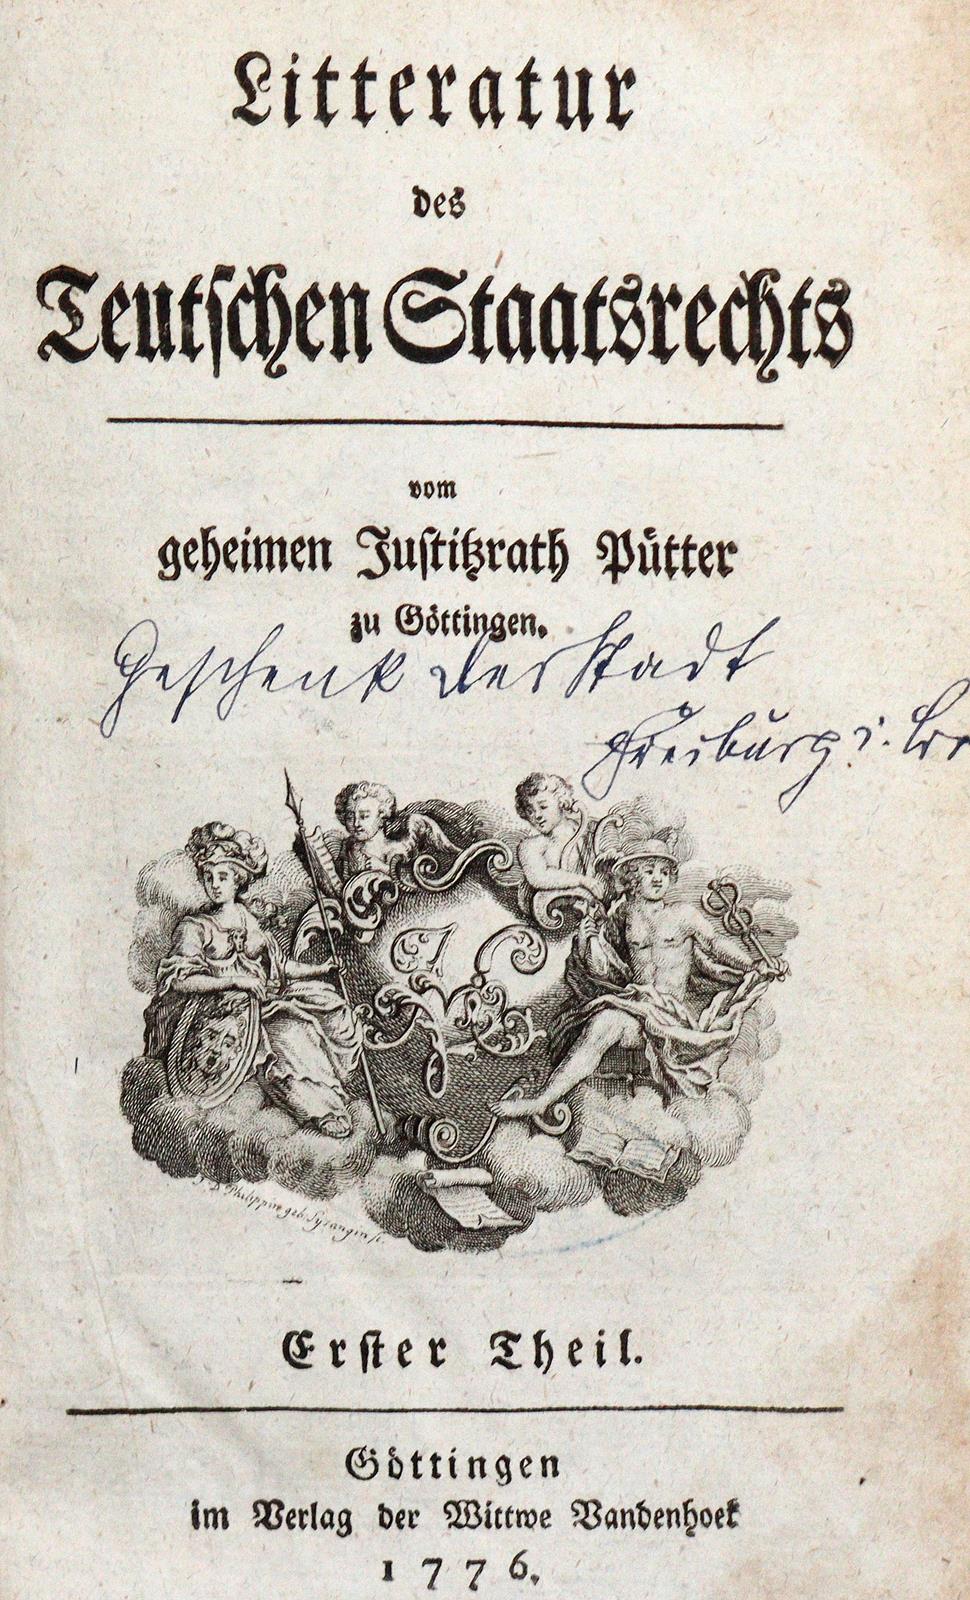 Litteratur
des
Teutschen Staatsrechts
vom
geheimen Justitzrath Pütter
zu Göttingen.
Geschenk der Stadt
Freiburg i. Br
Philippin geb. Sysangin sc.
Erster Theil.
Göttingen
im Verlag der Wittwe Vandenhoek
1776.